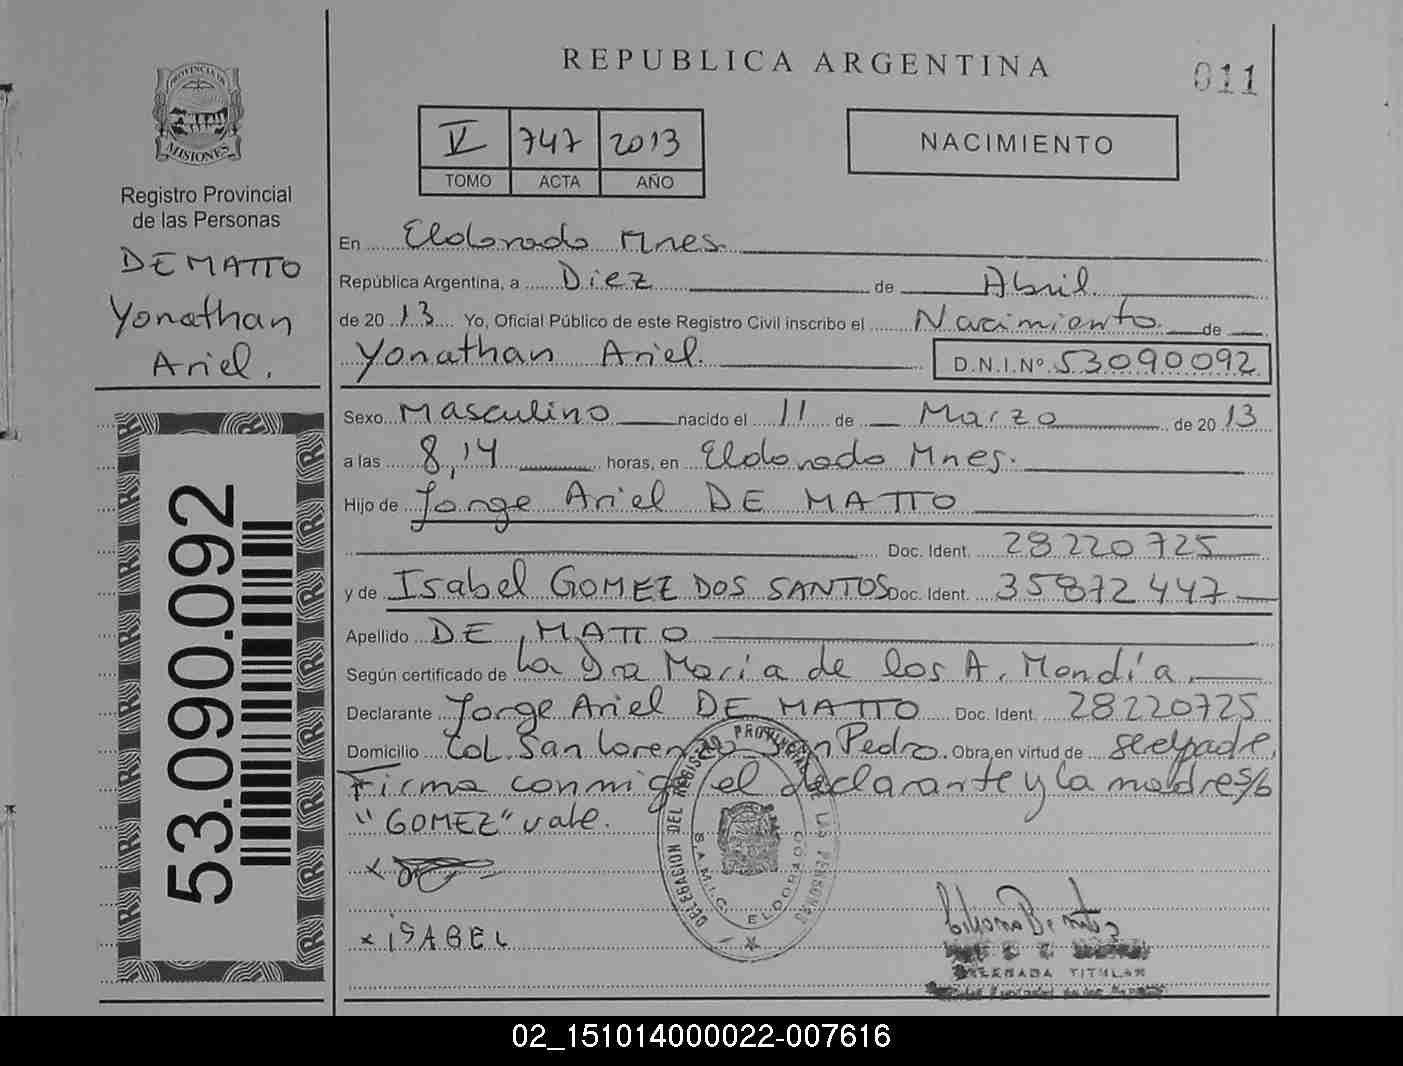 REPUBLICA ARGENTINA
011
PROVINCIA DE
MISIONES
Registro Provincial
de las Personas
DE MATTO
Yonathan
Ariel.
53.090.092
V 747 2013
TOMO ACTA AÑO
NACIMIENTO
En Eldorado Mnes.
República Argentina, a Diez de Abril
de 20 13 Yo, Oficial Público de este Registro Civil inscribo el Nacimiento de
Yonathan Ariel. D.N.I.Nº 53090092
Sexo Masculino nacido el 11 de Marzo de 20 13
a las 8,14 horas, en Eldorado Mnes.
Hijo de Jorge Ariel DE MATTO
Doc. Ident. 28220725
y de Isabel GOMEZ DOS SANTOS Doc. Ident. 35872447
Apellido DE MATTO
Según certificado de La Dra Maria de los A. Mendía
Declarante Jorge Ariel DE MATTO Doc. Ident. 28220725
Domicilio Col. San Lorenzo San Pedro. Obra en virtud de ser el padre,
Firma conmigo el declarante y la madre s/b
"GOMEZ" vale.
x
x ISABEL
DELEGACION DEL REGISTRO PROVINCIAL DE LAS PERSONAS
S.A.M.I.C. ELDORADO
DELEGADA TITULAR
02_151014000022-007616